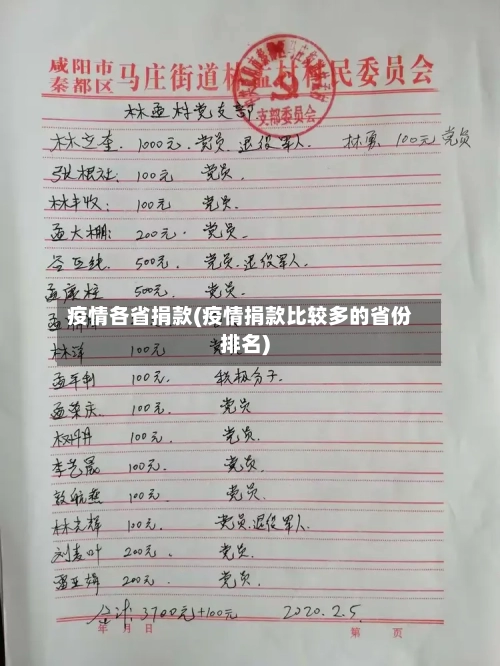 咸阳市
秦都区 马庄街道林孟村村民委员会
支部委员会
林孟村党支部
林立奎. 1000元. 党员. 退役军人. 林勇 100元 党员
张根社: 100元 党员.
林丰收: 100元 党员.
孟大棚: 200元. 党员.
500元. 党员. 退役军人.
孟康柱 500元. 党员.
疫情各省捐款(疫情捐款比较多的省份
排名)
林洋 100元
孟平利 100元. 积极分子.
孟荣庆. 100元. 党员
100元. 党员.
李艺晟 100元. 党员.
敖航燕 100元. 党员.
林光辉 100元. 党员.退役军人.
刘麦叶 200元. 党员.
200元. 党员.
合计: 3700元+100元 2020.2.5.
年 月 日 第 页